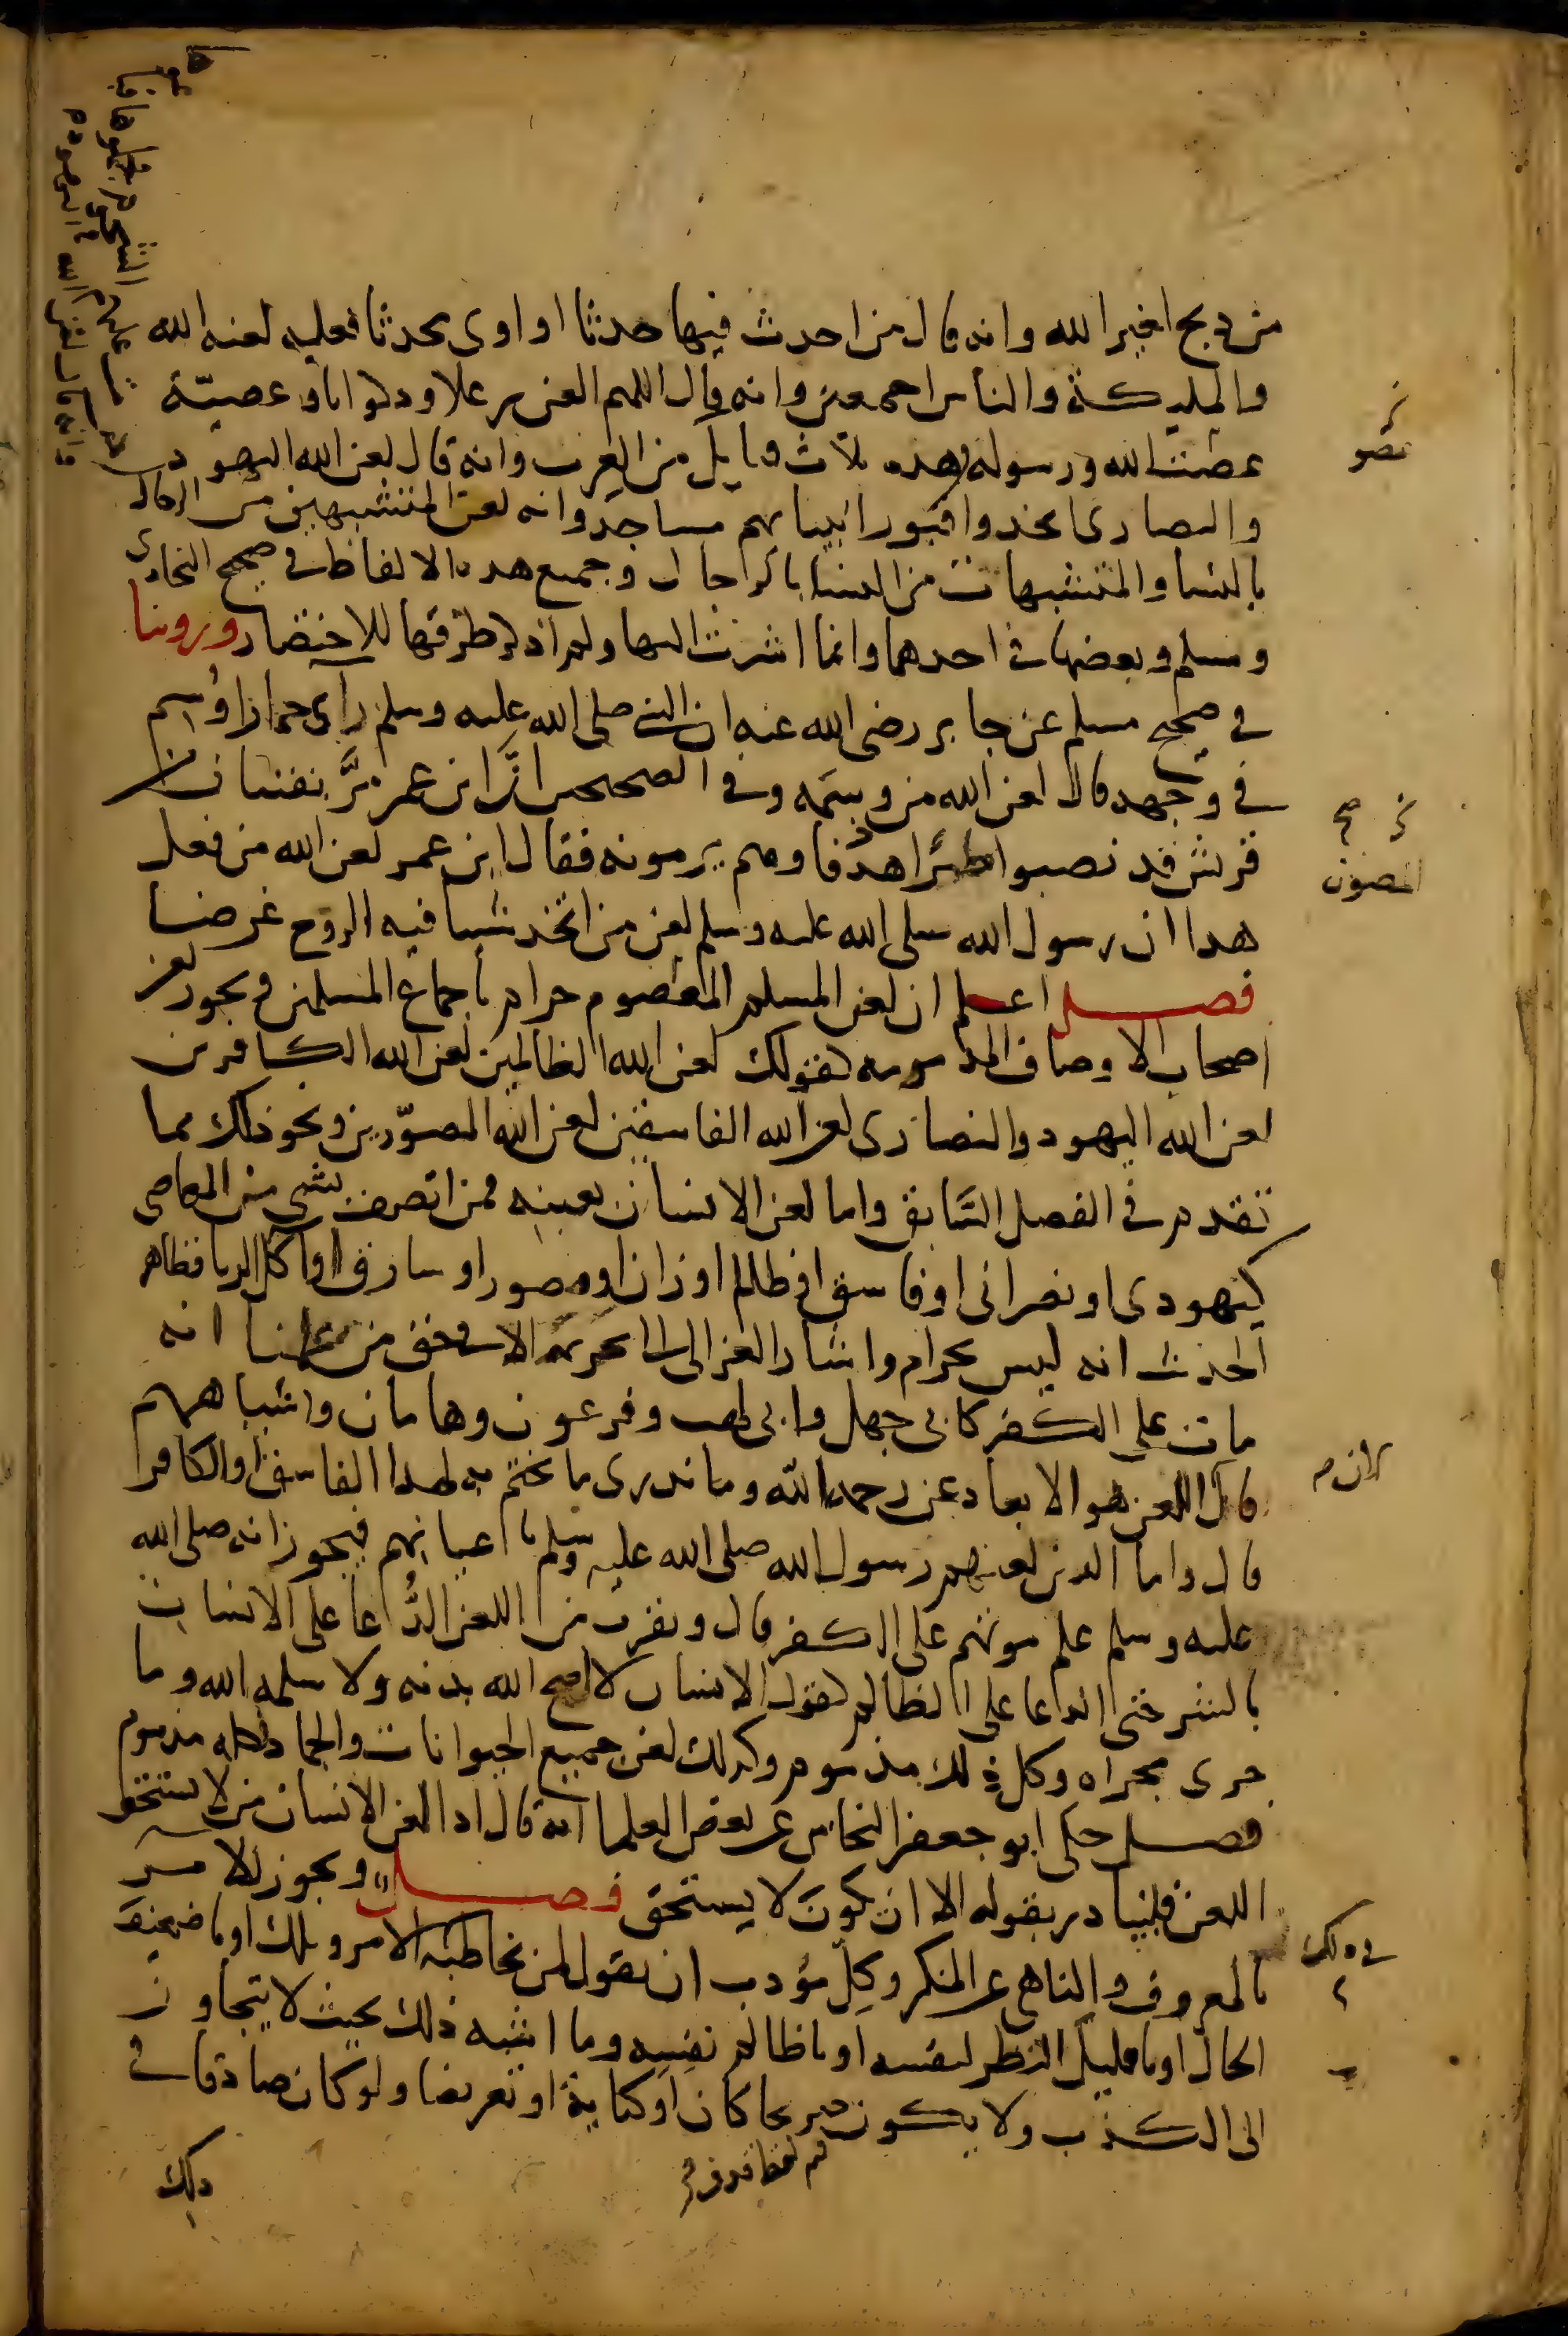 من ذبح لغير الله وانه قال من احدث فيها حدثا او اوى محدثا فعليه لعنة الله
والمليكة والناس اجمعين وانه قال اللهم العن رعلا وذكوان وعصيّة
عصت الله ورسوله وهذه ثلاث قبايل من العرب وانه قال لعن الله اليهود
والنصارى اتخذوا قبور انبيايهم مساجد وانه لعن المتشبهين من الرجال
بالنسا والمتشبهات من النسا بالرجال وجميع هذه الالفاظ في صحيح البخاري
ومسلم وبعضها في احدهما وانما اشرت اليها ولم اذكر طرقها للاختصار وروينا
في صحيح مسلم عن جابر رضى الله عنه ان النبي صلى الله عليه وسلم راى حمارا وُسِم
في وجهه فقال لعن الله من وسَمه وفي الصحيحين انّ ابن عمر مرّ بفتيان من
قريش قد نصبوا طيرًا هدفا وهم يرمونه فقال ابن عمر لعن الله من فعل
هذا ان رسول الله صلى الله عليه وسلم لعن من اتخذ شيا فيه الروح غرضا
فصل اعلم ان لعن المسلم المعصوم حرام باجماع المسلمين ويجوز لعن
اصحاب الاوصاف المذمومه كقولك لعن الله الظالمين لعن الله الكافرين
لعن الله اليهود والنصارى لعن الله الفاسقين لعن الله المصوّرين ونحو ذلك مما
تقدم في الفصل السَّابق واما لعن الانسان بعينه ممن اتصف بشي من المعاصي
كيهودى او نصرانى او فاسق او ظالم او زان او مصور او سارق او آكل الربا فظاهر
الحديث انه ليس بحرام واشار الغزالى الى تحريمه الا في حق من علمنا انه
مات على الكفر كابى جهل وابى لهب وفرعون وهامان واشباههم
قال لان اللعن هو الابعاد عن رحمة الله وما ندرى ما يختم به لهذا الفاسق او الكافر
قال واما الذين لعنهم رسول الله صلى الله عليه وسلم باعيانهم فيجوز انه صلى الله
عليه وسلم علم موتهم على الكفر قال ويقرب من اللعن الدُّعا على الانسان
بالشر حتى الدعا على الظالم كقول الانسان لا اصح الله بدنه ولا سلمه الله وما
جرى مجراه وكل ذلك مذموم وكذلك لعن جميع الحيوانات والجماد فكله مذموم
فصل حكى ابو جعفر النحاس عن بعض العلما انه قال اذا لعن الانسان من لا يستحق
اللعن فليبادر بقوله الا ان يكون لا يستحق فصل ويجوز للامر
بالمعروف والناهي عن المنكر وكل مؤدب ان يقول لمن يخاطبه في ذلك الامر ويلك او يا ضعيف
الحال او يا قليل النظر لنفسه او يا ظالم نفسه وما اشبه ذلك بحيث لا يتجاوز
الى الكذب ولا يكون فيه لفظ قذف صريحا كان او كناية او تعريضا ولو كان صادقا في
ذلك